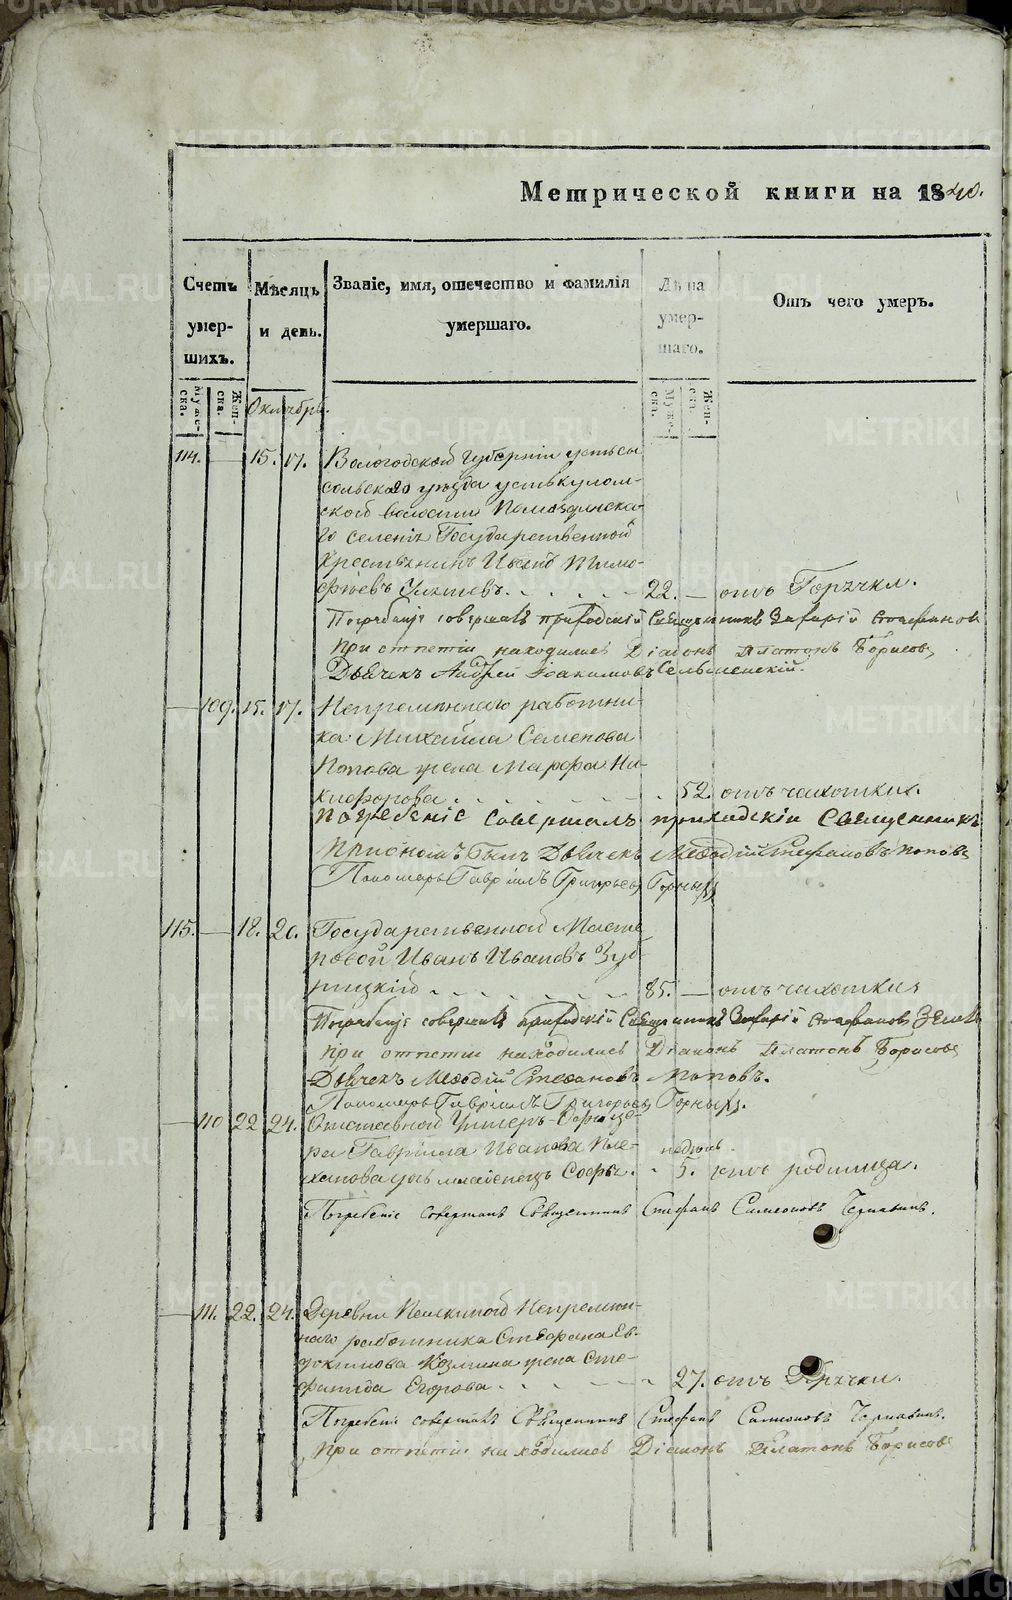 Метрической книги на 1840.
Счетъ умер- шихъ.
Мѣсяцъ и день.
Званіе, имя, отечество и фамилія умершаго.
Лѣта умер- шаго.
Отъ чего умеръ.
Муже- ска.
Жен- ска.
Муже- ска.
Жен- ска.
Октябрь.
114. — 15. 17. Вологодской Губерніи устьсы
сольскаго уѣзда устькулом-
ской волости Помоздинска-
го селенія Государственной
Крестьянинъ Иванъ Тимо-
фѣевъ Улитевъ. 22. — отъ Горячки.
Погребеніе совершалъ приходскій Священникъ Захарій Стефановъ
при отпетіи находились Діаконъ Платонъ Борисовъ,
Дьячекъ Андрей Іоакимовъ Сельменскій.
— 109. 15. 17. Непременнаго работни-
ка Михайла Семенова
Попова жена Марфа Ни-
кифорова. 52. отъ чахотки.
Погребеніе Совершалъ приходскій Священникъ
При ономъ былъ Дьячекъ Меѳодій Стефановъ Поповъ
Пономарь Гавріилъ Григорьевъ Горныхъ
115. — 18. 20. Государственной Масте
ровой Иванъ Ивановъ Зуб-
рицкій 85. — отъ чахотки
Погребеніе совершалъ приходскій Священникъ Захарій Стефановъ
при отпетіи находились Діаконъ Платонъ Борисовъ
Дьячекъ Меѳодій Стефановъ Поповъ.
Пономарь Гавріилъ Григорьевъ Горныхъ.
— 110 22 24. Отставнаго Унтеръ-Офице-
ра Гавріила Иванова Пле- недѣль.
ханова дочь младенецъ Софья. 5. отъ родимца.
Погребеніе совершалъ Священникъ Стефанъ Симеоновъ Чернавинъ.
— 111. 22. 24. Деревни Непремен-
наго работника Стефана Ев-
докимова Козмина жена Сте-
фанида Егорова 27. отъ Горячки.
Погребеніе совершалъ Священникъ Стефанъ Симеоновъ Чернавинъ.
при отпетіи находились Діаконъ Платонъ Борисовъ
METRIKI.GASO-URAL.RU